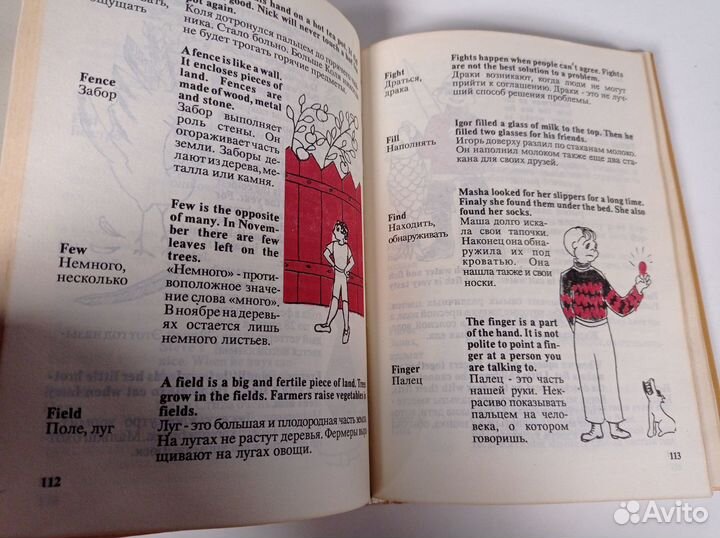 good. Nick will never touch a hot
pot again.
ощущать
Коля дотронулся пальцем до горячего
ника. Стало больно. Больше Коля никогда
не будет трогать горячие предметы.
A fence is like a wall.
It encloses pieces of
land. Fences are
made of wood, metal
and stone.
Fence
Забор
Забор выполняет
роль стены. Он
огораживает часть
земли. Заборы де-
лают из дерева, ме-
талла или камня.
Few is the opposite
of many. In Novem-
ber there are few
leaves left on the
trees.
Few
Немного,
несколько
«Немного» - проти-
воположное значе-
ние слова «много».
В ноябре на деревь-
ях остается лишь
немного листьев.
A field is a big and fertile piece of land. Trees
grow in the fields. Farmers raise vegetables in
fields.
Field
Поле, луг
Луг - это большая и плодородная часть земли.
На лугах не растут деревья. Фермеры выра-
щивают на лугах овощи.
112
Fights happen when people can't agree. Fights
are not the best solution to a problem.
Fight
Драться,
драка
Драки возникают, когда люди не могут
прийти к соглашению. Драки - это не луч-
ший способ решения проблемы.
Igor filled a glass of milk to the top. Then he
filled two glasses for his friends.
Fill
Наполнять
Игорь доверху разлил по стаканам молоко.
Он наполнил молоком также еще два ста-
кана для своих друзей.
Masha looked for her slippers for a long time.
Finaly she found them under the bed. She also
found her socks.
Find
Находить,
обнаруживать
Маша долго иска-
ла свои тапочки.
Наконец она обна-
ружила их под
кроватью. Она
нашла также и свои
носки.
The finger is a part
of the hand. It is not
polite to point a fin-
ger at a person you
are talking to.
Finger
Палец
Палец - это часть
нашей руки. Нек-
расиво показывать
пальцем на чело-
века, о котором
говоришь.
113
Avito